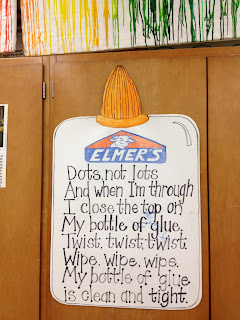 ELMER'S
Dots, not lots
And when I'm through
I close the top on
My bottle of glue.
Twist, twist, twist.
Wipe, wipe, wipe.
My bottle of glue
is clean and tight.